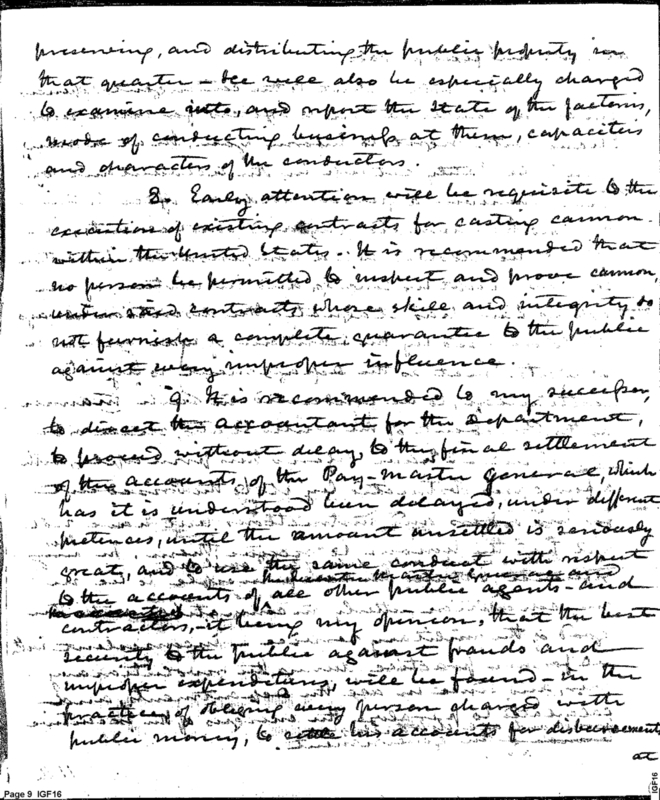 preserving, and distributing the public property in
that quarter – hee will also be especially charged
to examine into, and report the State of the factories,
mode of conducting business at them, capacities
and characters of the conductors.
8. Early attention will be requisite to the
execution of existing contracts for casting cannon
within the United States. It is recommended that
no person be permitted to inspect and prove cannon,
under said contracts whose skill and integrity do
not furnish a complete guarantee to the public
against every improper influence.
9. It is recommended to my successor,
to direct the accountant for the Department,
to proceed without delay, to the final settlement
of the accounts, of the Pay-Master General, which
has it is understood been delayed, under different
pretences, until the amount unsettled is seriously
great, and to use the same conduct with respect
to the accounts of all other public agents and
contractors, – it being my opinion, that the best
security to the public against frauds and
improper expenditures, will be found – in the
practice, of obliging every person charged with
public money, to settle his accounts for disbursements
at
Page 9 IGF16
IGF16